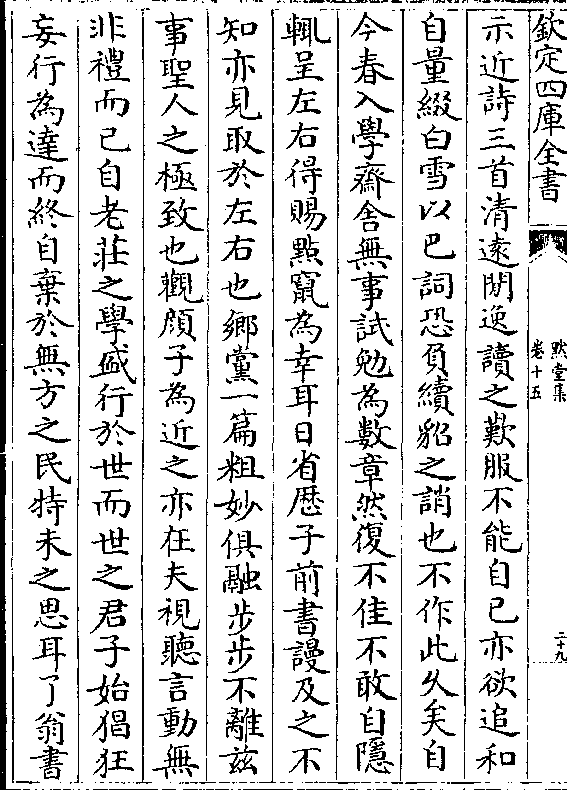 欽定四庫全書
默堂集
卷十五
二十九
示近詩三首清遠閒逸讀之歎服不能自已亦欲追和
自量綴白雪以巴詞恐負續貂之誚也不作此久矣自
今春入學齋舍無事試勉為數章然復不佳不敢自隱
輒呈左右得賜點竄為幸耳日省歴子前書謾及之不
知亦見取於左右也鄉黨一篇粗妙俱融步步不離兹
事聖人之極致也觀顔子為近之亦在夫視聽言動無
非禮而已自老莊之學盛行於世而世之君子始猖狂
妄行為達而終自棄於無方之民特未之思耳了翁書